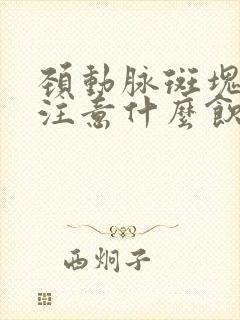 頚動脉斑塊
注意什麼飲
西炯子